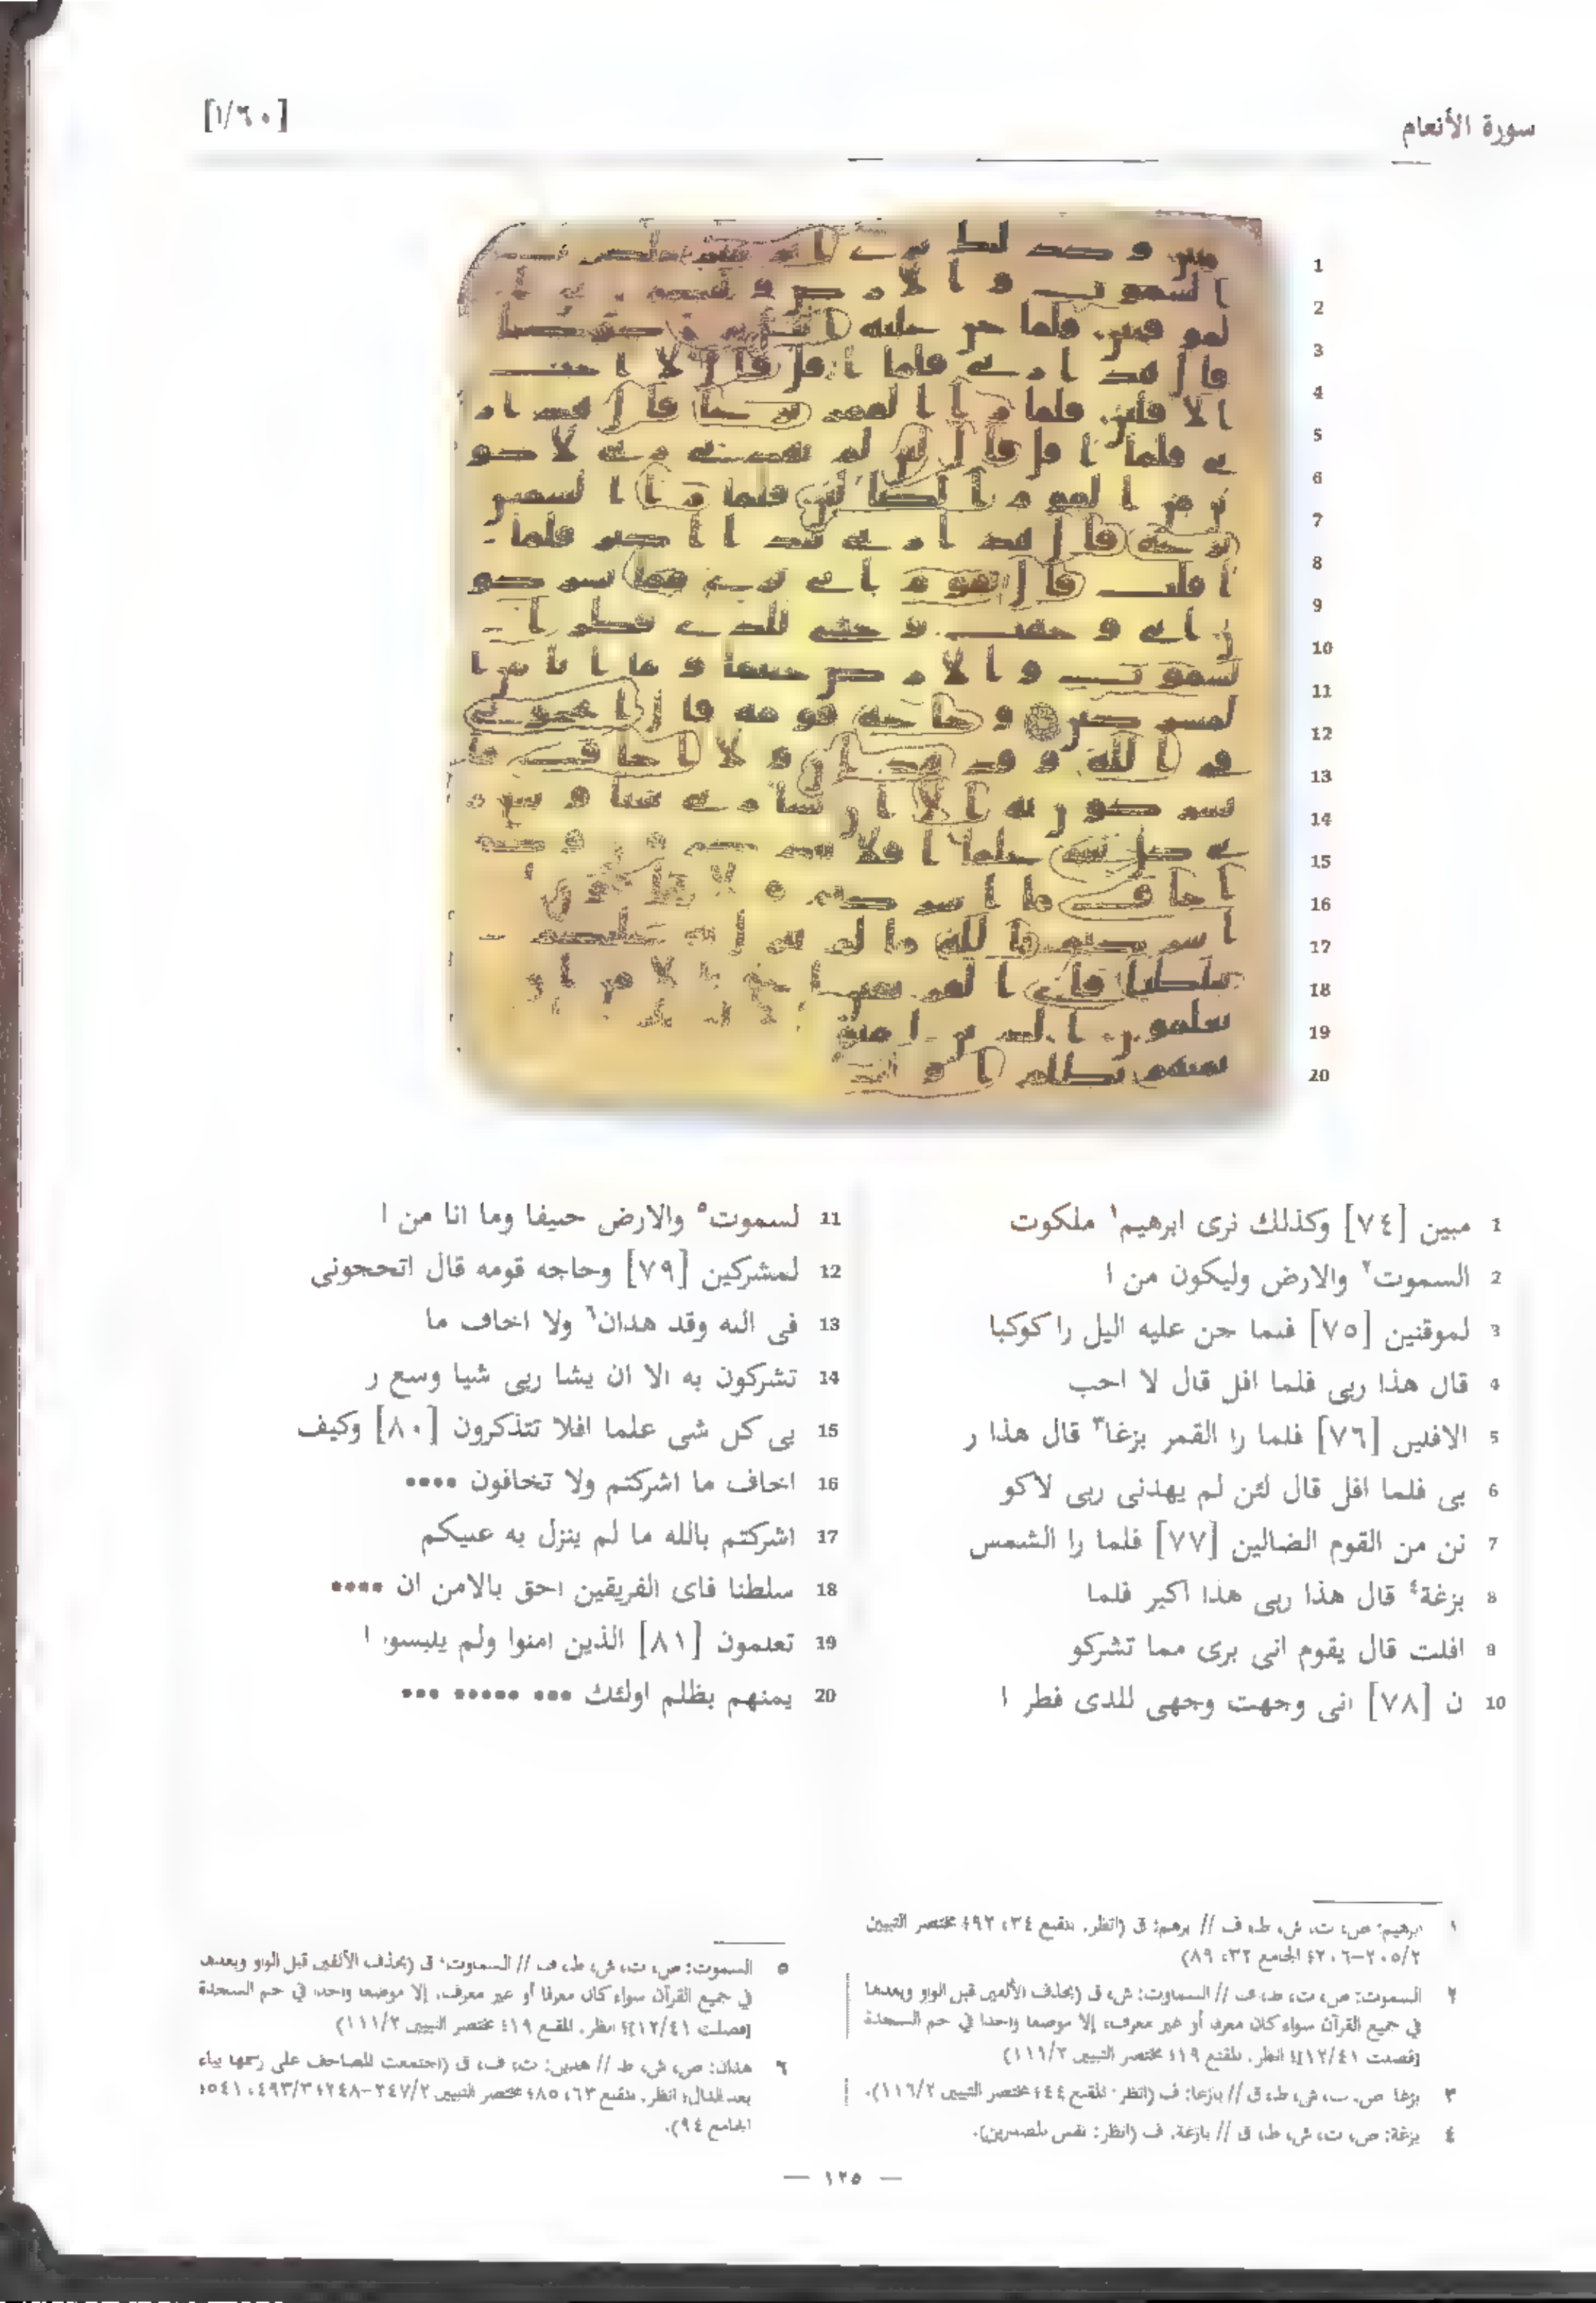 سورة الأنعام
[١/٦٠]
1
2
3
4
5
6
7
8
9
10
11
12
13
14
15
16
17
18
19
20
1 مبين [٧٤] وكذلك نرى ابرهيم١ ملكوت
2 السموت٢ والارض وليكون من ا
3 لموقنين [٧٥] فلما جن عليه اليل را كوكبا
4 قال هذا ربى فلما افل قال لا احب
5 الافلين [٧٦] فلما را القمر بزغا٣ قال هذا ر
6 بى فلما افل قال لئن لم يهدنى ربى لاكو
7 نن من القوم الضالين [٧٧] فلما را الشمس
8 بزغة٤ قال هذا ربى هذا اكبر فلما
9 افلت قال يقوم انى برى مما تشركو
10 ن [٧٨] انى وجهت وجهى للذى فطر ا
11 لسموت٥ والارض حنيفا وما انا من ا
12 لمشركين [٧٩] وحاجه قومه قال اتحجونى
13 فى الله وقد هدان٦ ولا اخاف ما
14 تشركون به الا ان يشا ربى شيا وسع ر
15 بى كل شى علما افلا تتذكرون [٨٠] وكيف
16 اخاف ما اشركتم ولا تخافون ••••
17 اشركتم بالله ما لم ينزل به عليكم
18 سلطنا فاى الفريقين احق بالامن ان ••••
19 تعلمون [٨١] الذين امنوا ولم يلبسوا ا
20 يمنهم بظلم اولئك ••• ••••• •••
١ ابرهيم: ص، ت، ش، ط، ف // ابرهم: ق (انظر. المقنع ٣٤، ٩٢؛ مختصر التبيين
٢/٢٠٥-٢٠٦؛ الجامع ٣٢، ٨٩)
٢ السموت: ص، ت، ط، ف // السماوت: ش، ق (بحذف الألفين قبل الواو وبعدها
في جميع القرآن سواء كان معرفا أو غير معرف، إلا موضعا واحدا في حم السجدة
[فصلت ١٢/٤١]؛ انظر. المقنع ١٩؛ مختصر التبيين ١١١/٢)
٣ بزغا: ص، ت، ش، ط، ق // بازغا: ف (انظر: المقنع ٤٤؛ مختصر التبيين ١١٦/٢).
٤ بزغة: ص، ت، ش، ط، ق // بازغة: ف (انظر: نفس المصدرين).
٥ السموت: ص، ت، ش، ط، ف // السماوت: ق (بحذف الألفين قبل الواو وبعدها
في جميع القرآن سواء كان معرفا أو غير معرف، إلا موضعا واحدا في حم السجدة
[فصلت ١٢/٤١]؛ انظر. المقنع ١٩؛ مختصر التبيين ١١١/٢)
٦ هدان: ص، ش، ط // هدين: ت، ف، ق (اجتمعت المصاحف على رسمها بياء
بعد الدال؛ انظر. المقنع ٦٣، ٨٥؛ مختصر التبيين ٢/٢٤٧-٢٤٨؛ ٤٩٣/٣؛ ٥٤١؛
الجامع ٩٤).
— ١٢٥ —